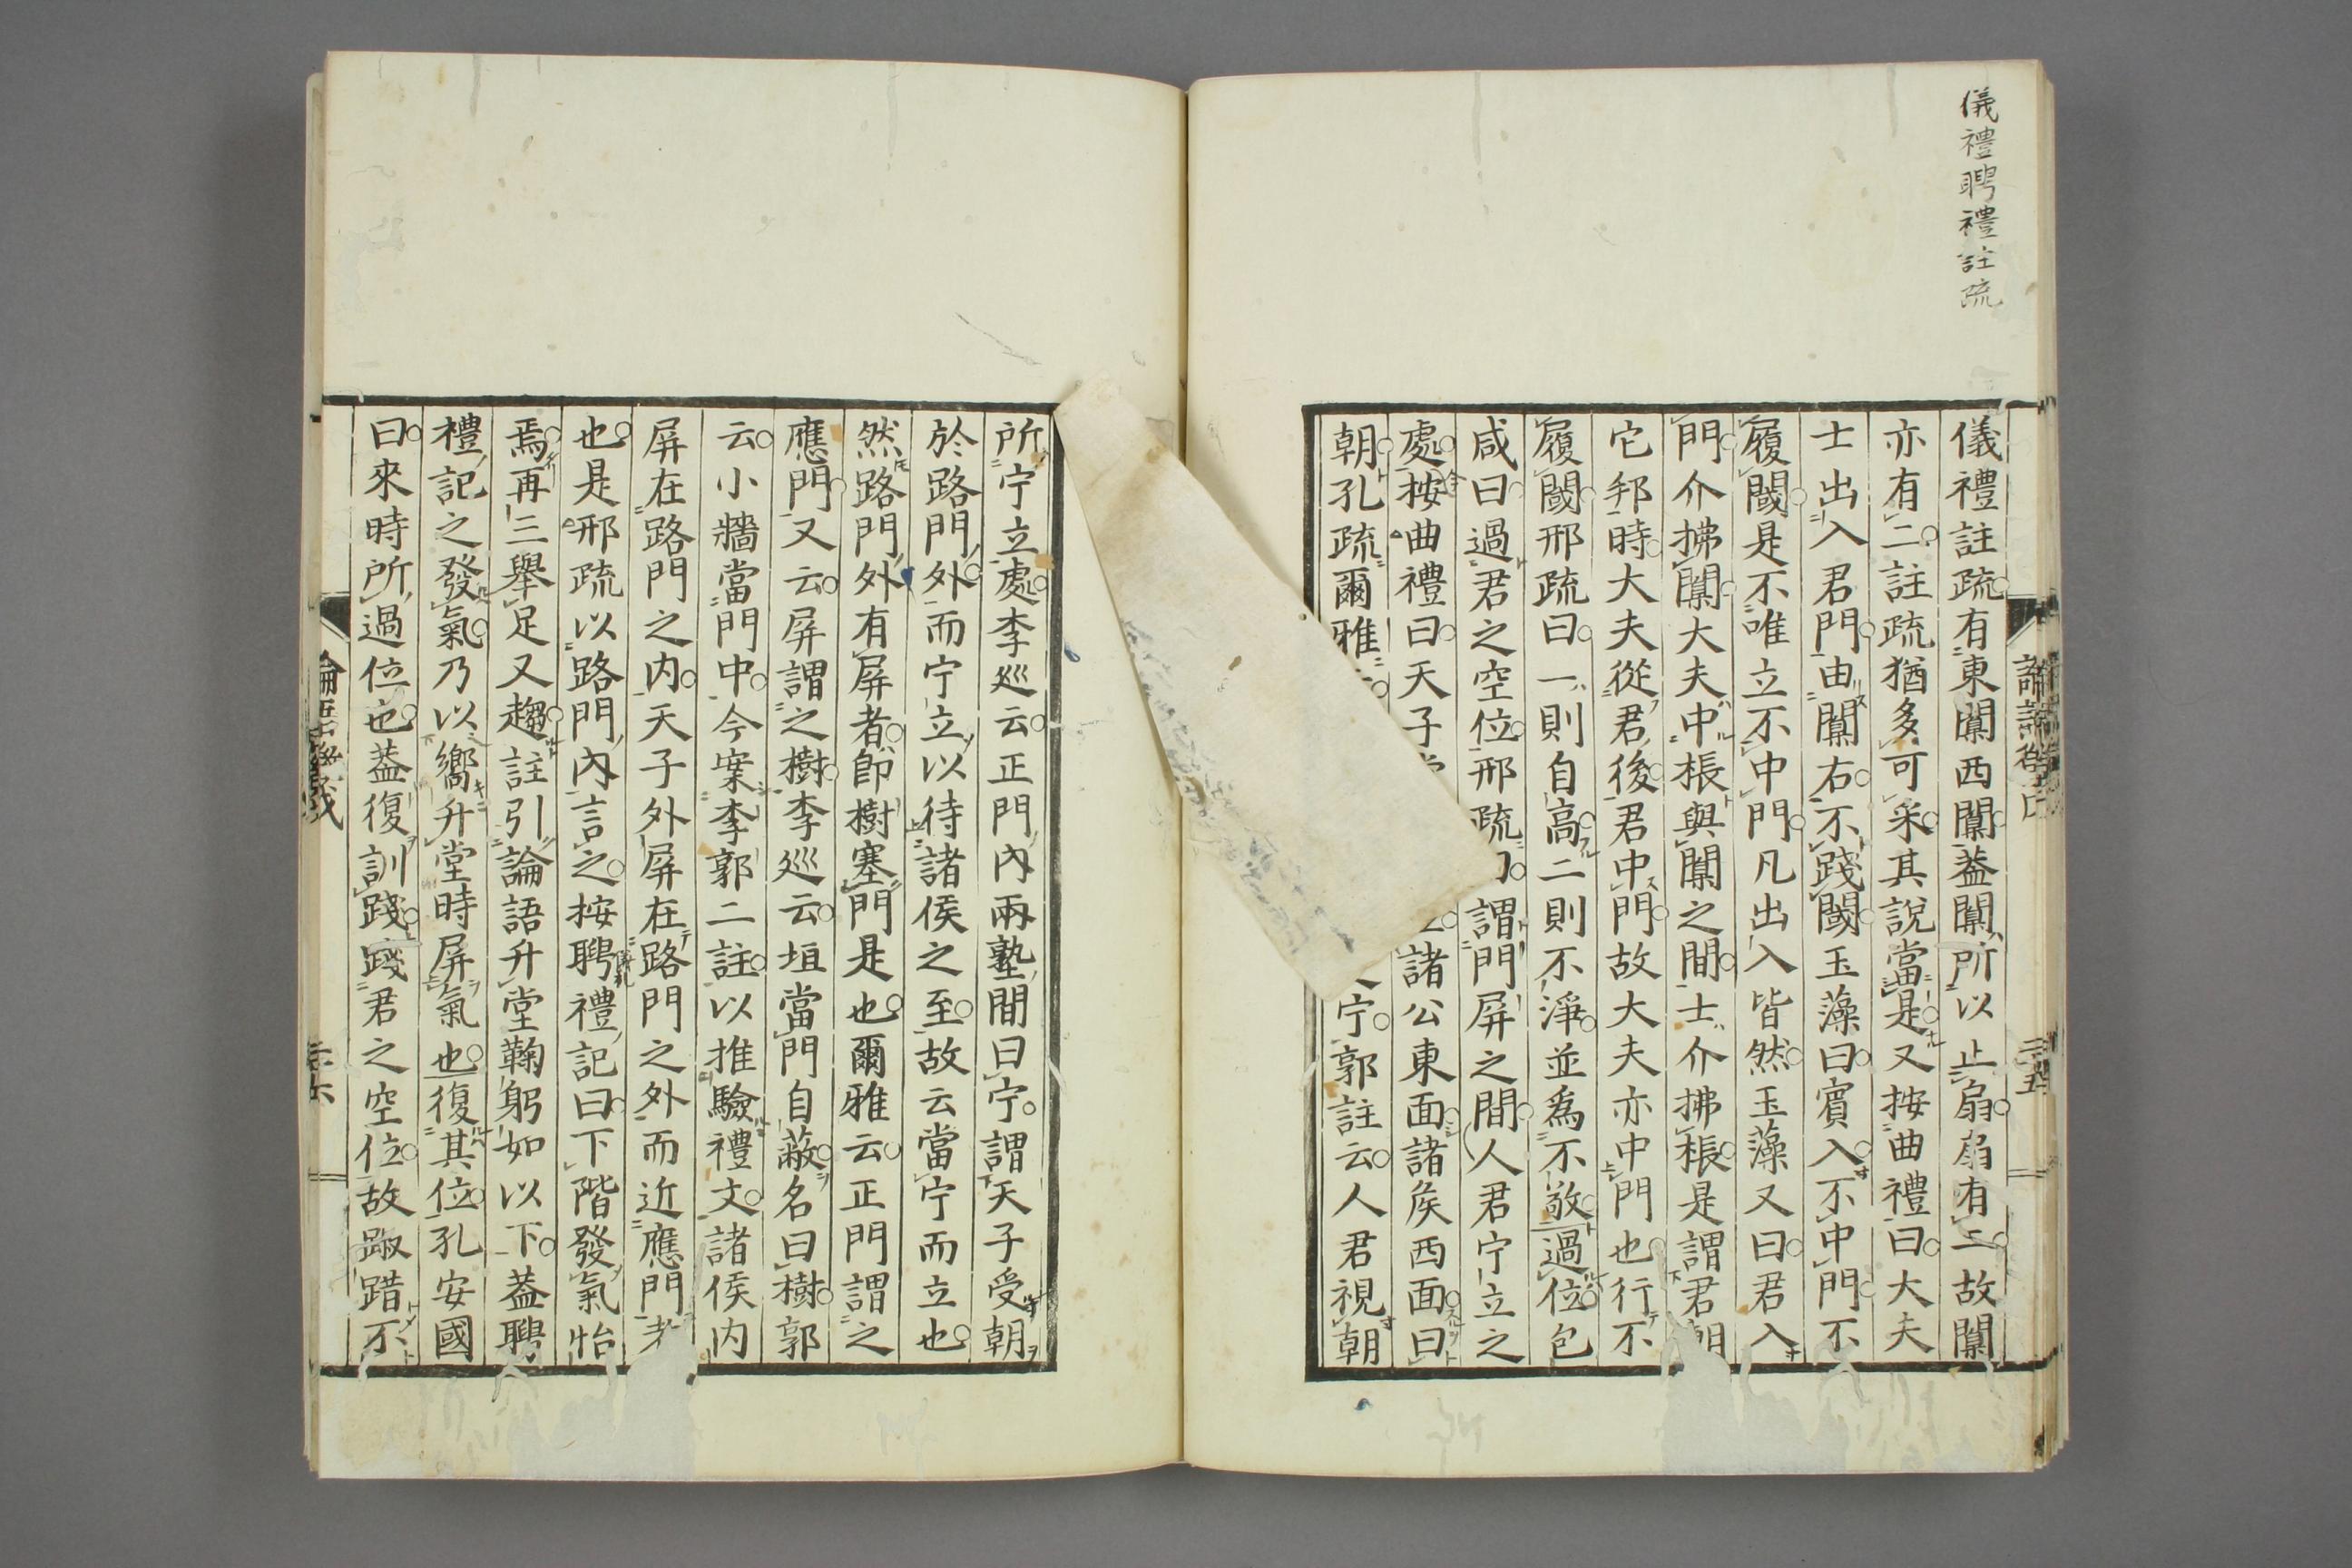 儀禮聘禮註疏
儀禮註疏有東闑西闑蓋闑所以止扇扇有二故闑
亦有二註疏猶多可采其說當是又按曲禮曰大夫
士出入君門由闑右不踐閾玉藻曰賓入不中門不
履閾是不唯立不中門凡出入皆然玉藻又曰君入
門介拂闑大夫中棖與闑之間士介拂棖是謂君朝
它邦時大夫從君後君中門故大夫亦中門也行不
履閾邢疏曰一則自高二則不淨並爲不敬過位包
咸曰過君之空位邢疏謂門屏之間人君宁立之
處按曲禮曰天子諸公東面諸侯西面曰
朝孔疏爾雅宁郭註云人君視朝
所宁立處李巡云正門內兩塾間曰宁謂天子受朝
於路門外而宁立以待諸侯之至故云當宁而立也
然路門外有屏者卽樹塞門是也爾雅云正門謂之
應門又云屏謂之樹李巡云垣當門自蔽名曰樹郭
云小牆當門中今案李郭二註以推驗禮文諸侯内
屏在路門之内天子外屏在路門之外而近應門者
也是邢疏以路門內言之按聘禮記曰下階發氣怡
焉再三舉足又趨註引論語升堂鞠躬如以下蓋聘
禮記之發氣乃以嚮升堂時屏氣也復其位孔安國
曰來時所過位也蓋復訓踐踐君之空位故踧踖不